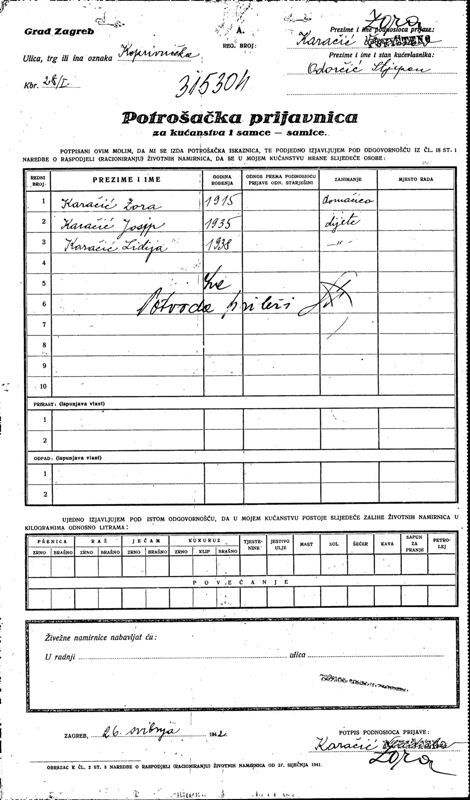 Grad Zagreb
Ulica, trg ili ina oznaka Koprivnička
Kbr. 28/I.
A.
REG. BROJ:
315304
Zora
Prezime i ime podnosioca prijave:
Karačić
Prezime i ime i stan kućevlasnika:
Odorčić Stjepan
Potrošačka prijavnica
za kućanstva i samce — samice.
POTPISANI OVIM MOLIM, DA MI SE IZDA POTROŠAČKA ISKAZNICA, TE PODJEDNO IZJAVLJUJEM POD ODGOVORNOŠĆU IZ ČL. 18 ST. 1
NAREDBE O RASPODJELI (RACIONIRANJU) ŽIVOTNIH NAMIRNICA, DA SE U MOJEM KUĆANSTVU HRANE SLIJEDEĆE OSOBE:
REDNI BROJ: PREZIME I IME GODINA ROĐENJA ODNOS PREMA PODNOSIOCU PRIJAVE ODN. STARJEŠINI ZANIMANJE MJESTO RADA
1 Karačić Zora 1915 domaćica
2 Karačić Josip 1935 dijete
3 Karačić Lidija 1938 —"—
4
5
6 Potvrda prileži
7
8
9
10
PRIRAST: (ispunjava vlast)
1
2
OTPAD: (ispunjava vlast)
1
2
UJEDNO IZJAVLJUJEM POD ISTOM ODGOVORNOŠĆU, DA U MOJEM KUĆANSTVU POSTOJE SLIJEDEĆE ZALIHE ŽIVOTNIH NAMIRNICA U
KILOGRAMIMA ODNOSNO LITRAMA:
PŠENICA RAŽ JEČAM KUKURUZ TJESTENINE JESTIVO ULJE MAST SOL ŠEĆER KAVA SAPUN ZA PRANJE PETROLEJ
ZRNO BRAŠNO ZRNO BRAŠNO ZRNO BRAŠNO ZRNO KLIP BRAŠNO
POVEĆANJE
Živežne namirnice nabavljat ću:
U radnji ulica
ZAGREB, 26. svibnja 1942.
POTPIS PODNOSIOCA PRIJAVE:
Karačić
Zora
OBRAZAC K ČL. 2 ST. 2 NAREDBE O RASPODJELI (RACIONIRANJU) ŽIVOTNIH NAMIRNICA OD 27. SIJEČNJA 1941.